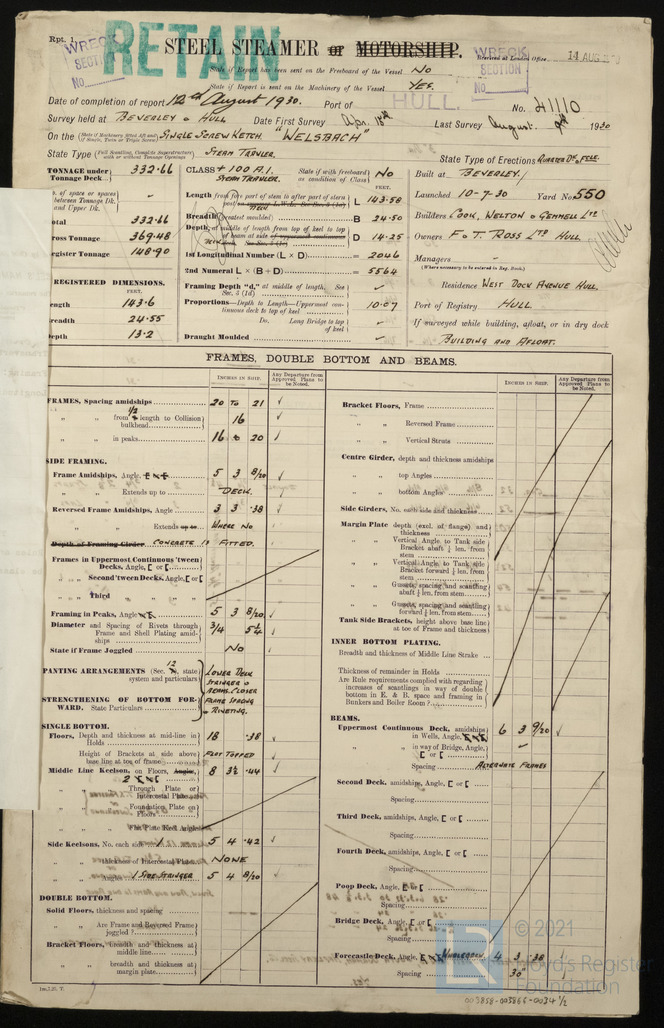 Rpt. 1.
WRECK SECTION No
RETAIN
STEEL STEAMER or MOTORSHIP.
WRECK SECTION No
Received at London Office
14 AUG
State if Report has been sent on the Freeboard of the Vessel No
State if Report is sent on the Machinery of the Vessel YES.
Date of completion of report 12th August 1930. Port of HULL. No. 41110
Survey held at BEVERLEY & HULL Date First Survey Apr. 16th Last Survey August 9th 1930
On the (State if Machinery fitted Aft and if Single, Twin or Triple Screw) SINGLE SCREW KETCH. "WELSBACH"
State Type (Full Scantling, Complete Superstructure with or without Tonnage Openings) STEAM TRAWLER. State Type of Erections QUARTER DK, FCLE.
TONNAGE under Tonnage Deck 332.66
of space or spaces between Tonnage Dk. and Upper Dk. -
Total 332.66
Gross Tonnage 369.48
Register Tonnage 148.90
REGISTERED DIMENSIONS.
FEET.
Length 143.6
Breadth 24.55
Depth 13.2
CLASS + 100 A.1. STEAM TRAWLER. State if with freeboard as condition of Class No
FEET.
Length from fore part of stem to after part of stern post L 143.58
Breadth Greatest moulded B 24.50
Depth at middle of length from top of keel to top of beam at side D 14.25
1st Longitudinal Number (L × D) = 2046
2nd Numeral L × (B + D) = 5564
Framing Depth "d," at middle of length. See Sec. 3 (1d) ✓
Proportions—Depth to Length—Uppermost continuous deck to top of keel 10.07
Do. Long Bridge to top of keel ✓
Draught Moulded ✓
Built at BEVERLEY
Launched 10-7-30 Yard No 550
Builders COOK, WELTON & GEMMELL LTD
Owners F & T. ROSS LTD HULL
Managers -
(Where necessary to be entered in Reg. Book.)
Residence WEST DOCK AVENUE HULL.
Port of Registry HULL
If surveyed while building, afloat, or in dry dock
BUILDING AND AFLOAT.
FRAMES, DOUBLE BOTTOM AND BEAMS.
INCHES IN SHIP. Any Departure from Approved Plans to be Noted.
FRAMES, Spacing amidships 20 TO 21 ✓
" " from 1/2 length to Collision bulkhead 16 ✓
" " in peaks 16 & 20 ✓
SIDE FRAMING.
Frame Amidships, Angle, E or E 5 3 8/20 ✓
" " Extends up to DECK.
Reversed Frame Amidships, Angle 3 3 .38 ✓
" " " Extends up to WHERE NO
Depth of Framing Girder CONCRETE IS FITTED.
Frames in Uppermost Continuous 'tween Decks, Angle, [ or [
" " Second 'tween Decks, Angle, [ or [
" " Third " " " "
Framing in Peaks, Angle 5 3 8/20 ✓
Diameter and Spacing of Rivets through Frame and Shell Plating amidships 3/4 5 1/4 ✓
State if Frame Joggled No
PANTING ARRANGEMENTS (Sec. 12, state) system and particulars
STRENGTHENING OF BOTTOM FORWARD. State Particulars
LOWER DECK
STRINGER &
BEAMS. CLOSER
FRAME SPACING
& RIVETING.
SINGLE BOTTOM.
Floors, Depth and thickness at mid-line in Holds 18 .38 ✓
" Height of Brackets at side above base line at toe of frame FLAT TOPPED
Middle Line Keelson, on Floors, Angles, 2 8 3½ .44 ✓
" " Through Plate or Intercostal Plate
" " Foundation Plate on Floors
" " Flat Plate Keel Angles
Side Keelsons, No. each side 1 5 4 .42 ✓
" " thickness of Intercostal Plate NONE
" " Angles 1 SIDE STRINGER 5 4 8/20 ✓
DOUBLE BOTTOM.
Solid Floors, thickness and spacing
" " Are Frame and Reversed Frame joggled?
Bracket Floors, breadth and thickness at middle line
" " breadth and thickness at margin plate
INCHES IN SHIP. Any Departure from Approved Plans to be Noted.
Bracket Floors, Frame
" " Reversed Frame
" " Vertical Struts
Centre Girder, depth and thickness amidships
" " top Angles
" " bottom Angles
Side Girders, No. each side and thickness
Margin Plate depth (excl. of flange) and thickness
" " Vertical Angle to Tank side Bracket abaft ¼ len. from stem
" " Vertical Angle to Tank side Bracket forward ¼ len. from stem
" " Gussets, spacing and scantling abaft ¼ len. from stem
" " Gussets, spacing and scantling forward ¼ len. from stem
Tank Side Brackets, height above base line at toe of Frame and thickness
INNER BOTTOM PLATING.
Breadth and thickness of Middle Line Strake
Thickness of remainder in Holds
Are Rule requirements complied with regarding increases of scantlings in way of double bottom in E. & B. space and framing in Bunkers and Boiler Room?
BEAMS.
Uppermost Continuous Deck, amidships in Wells, Angle, 6 3 9/20 ✓
" " in way of Bridge, Angle, [ or [ ✓
Spacing ALTERNATE FRAMES
Second Deck, amidships, Angle, [ or [
Spacing
Third Deck, amidships, Angle, [ or [
Spacing
Fourth Deck, amidships, Angle, [ or [
Spacing
Poop Deck, Angle, [ or [
Spacing
Bridge Deck, Angle, [ or [
Spacing
Forecastle Deck, Angle, 4 3 .38
Spacing 30"
© 2021
Lloyd's Register
Foundation
003858-003866-0034 ½